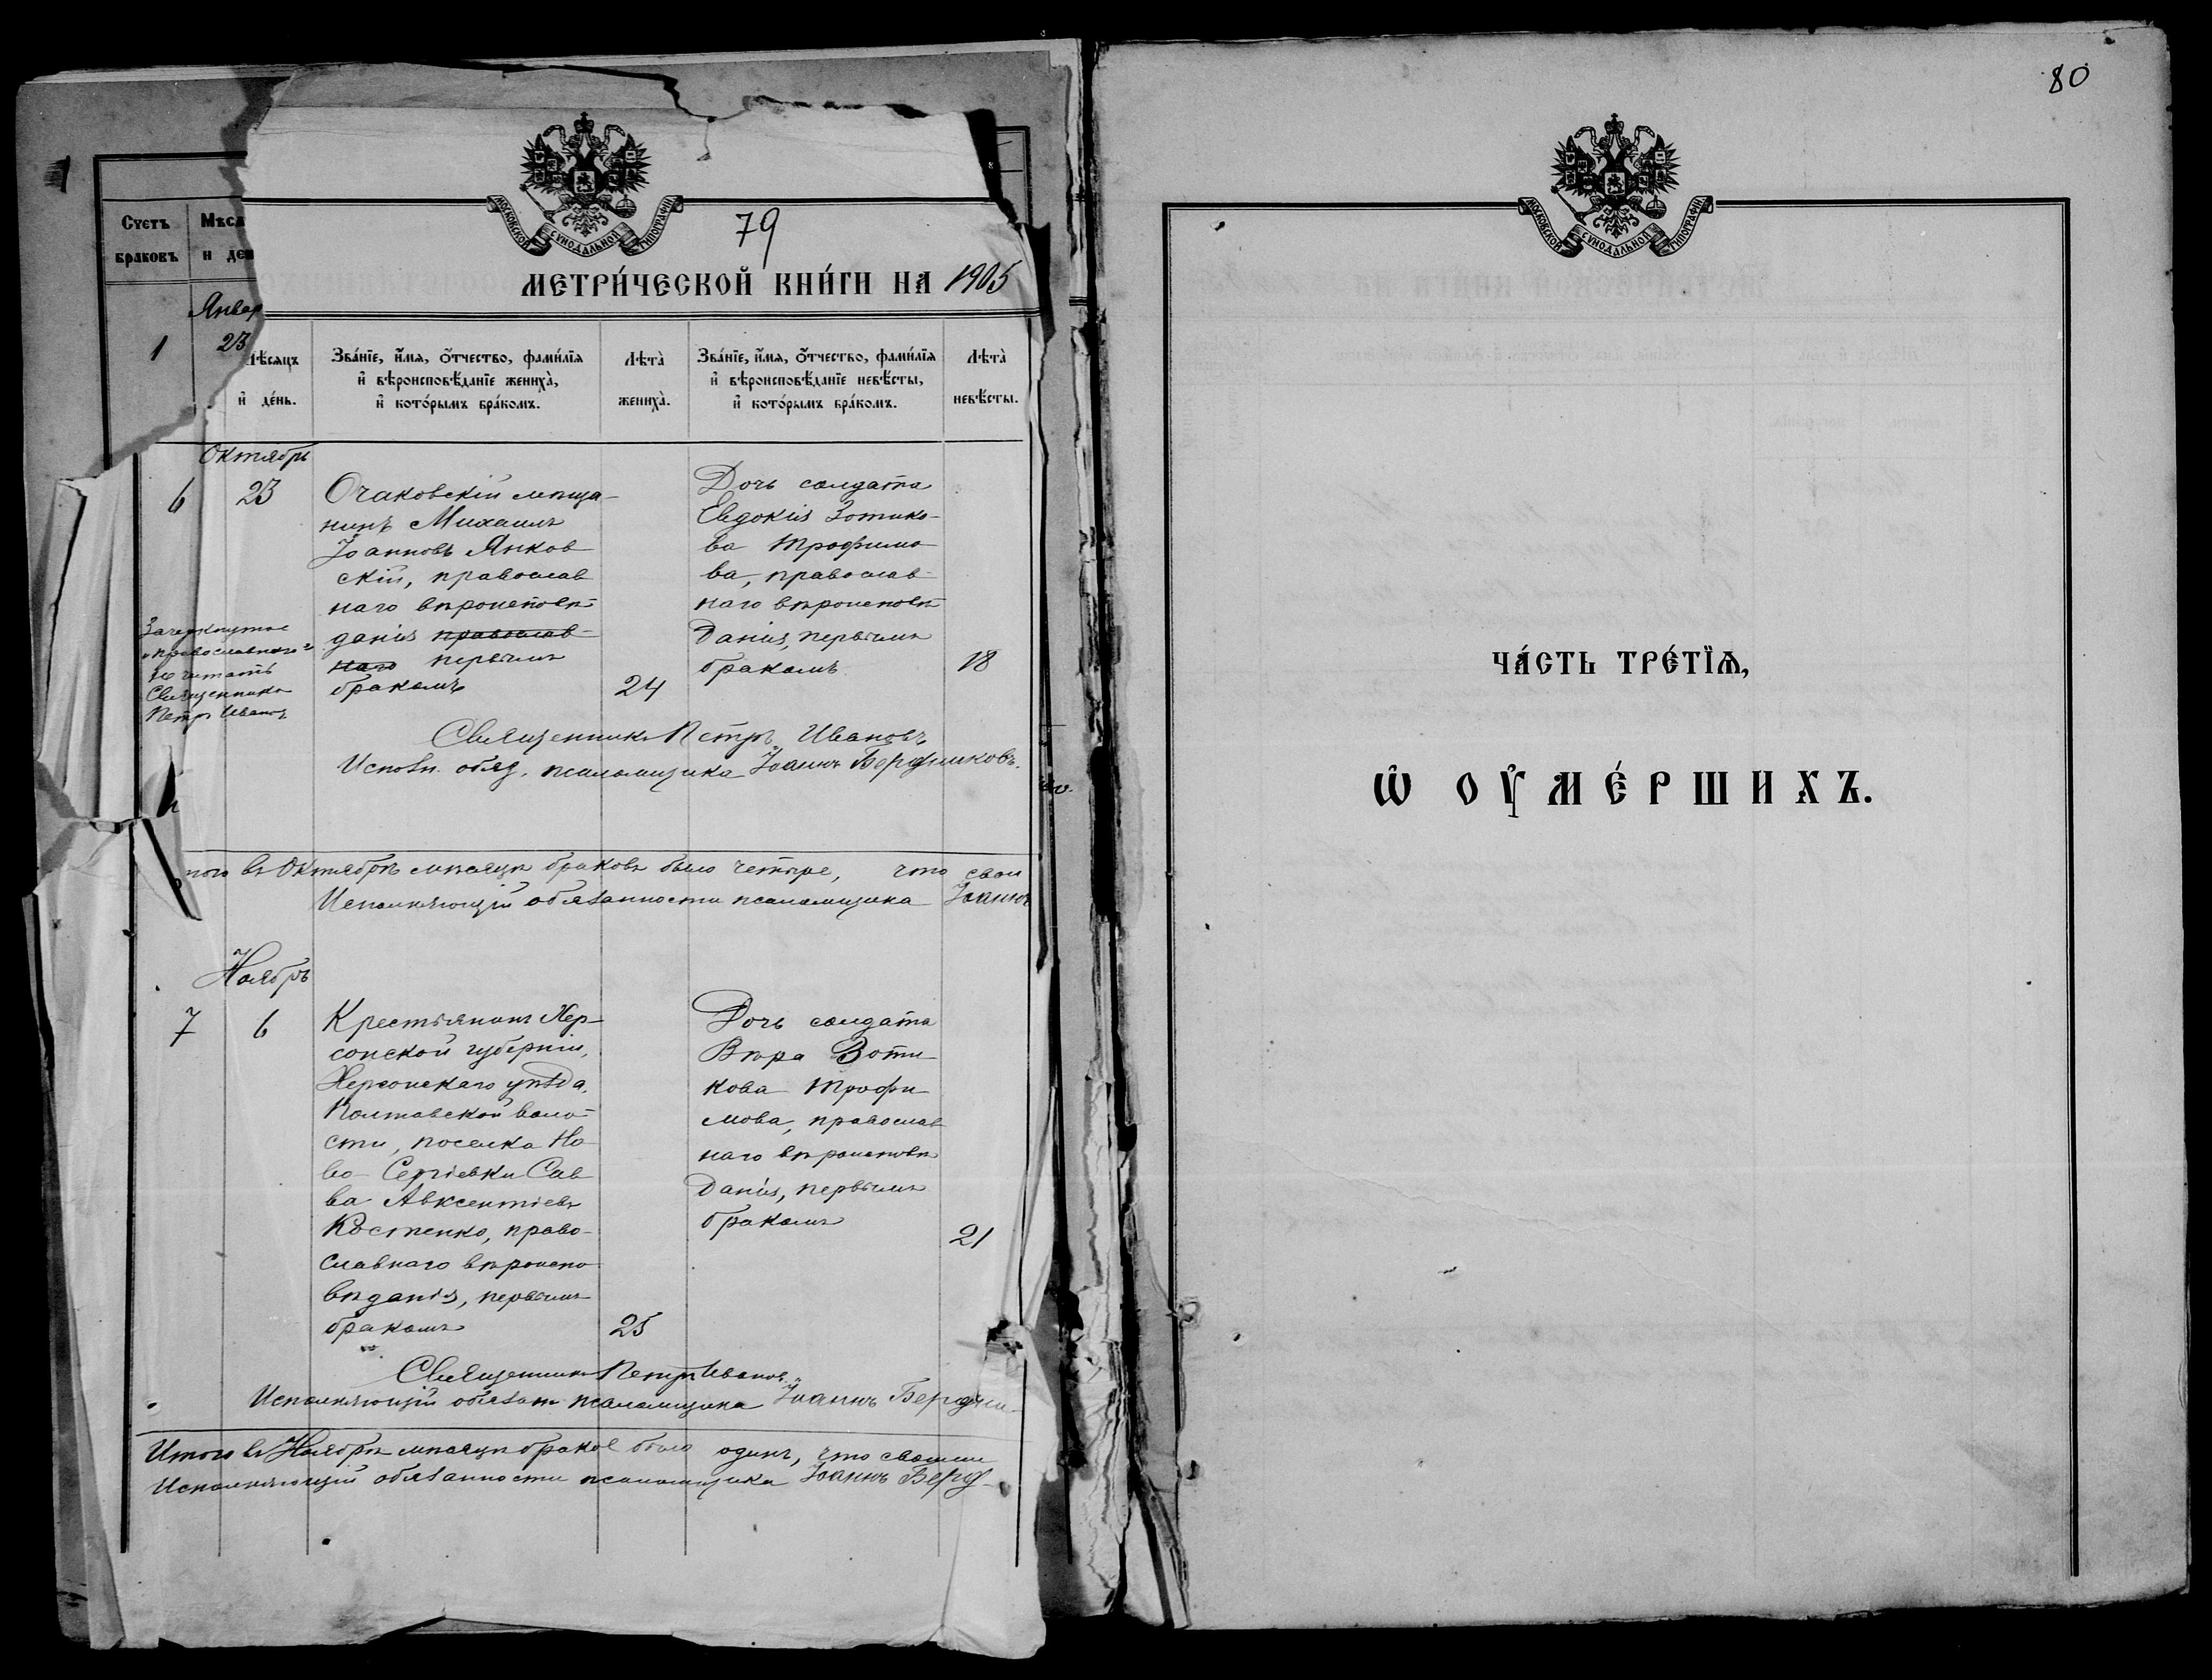 79
МОСКОВСКОЙ СУНОДАЛЬНОЙ ТИПОГРАФІИ
МЕТРИ́ЧЕСКОЙ КНИ́ГИ НА 1905
Счетъ
браковъ
Мѣся
и ден
Январ
1 23
Мѣсяцъ
и де́нь.
Зва́нїе, и҆́мя, ѻ҆́тчество, фами́лїя
и҆ вѣроисповѣ́данїе женихà,
и҆ кото́рымъ бра́комъ.
Лѣта̀
жениха̀.
Зва́нїе, и҆́мя, ѻ҆́тчество, фами́лїя
и҆ вѣроисповѣ́данїе невѣ́сты,
и҆ кото́рымъ бра́комъ.
Лѣта̀
невѣ́сты.
Октябрь
6 23
Очаковскій мѣща-
нинъ Михаилъ
Іоанновъ Янков
скій, православ
наго вѣроисповѣ-
данія православ-
наго первымъ
бракомъ
24
Дочь солдата
Евдокія Зотико-
ва Трофимо
ва, православ-
наго вѣроисповѣ
данія, первымъ
бракомъ
18
Зачеркнутое
„православного"
не читать
Священникъ
Петръ Ивановъ
Священникъ Петръ Ивановъ
Исполн. обяз. псаломщика Іоаннъ Бердниковъ.
того въ Октябрѣ мѣсяцѣ браковъ было четыре, что свои
Исполняющій обязанности псаломщика Іоаннъ
Ноябрь
7 6
Крестьянинъ Хер-
сонской губерніи,
Херсонскаго уѣзда,
Полтавской воло-
сти, поселка Но
во-Сергіевки Сав
ва Авксентіевъ
Костенко, право-
славнаго вѣроиспо
вѣданія, первымъ
бракомъ
25
Дочь солдата
Вѣра Зоти-
кова Трофи
мова, православ
наго вѣроисповѣ
данія, первымъ
бракомъ
21
Священникъ Петръ Ивановъ
Исполняющій обязан. псаломщика Іоаннъ Бердни-
Итого въ Ноябрѣ мѣсяцѣ браковъ было одинъ, что своими
Исполняющій обязанности псаломщика Іоаннъ Берд-
80
МОСКОВСКОЙ СУНОДАЛЬНОЙ ТИПОГРАФІИ
ЧА́СТЬ ТРЕ́ТЇѦ,
Ѡ҆ ОУ҆МЕ́РШИХЪ.